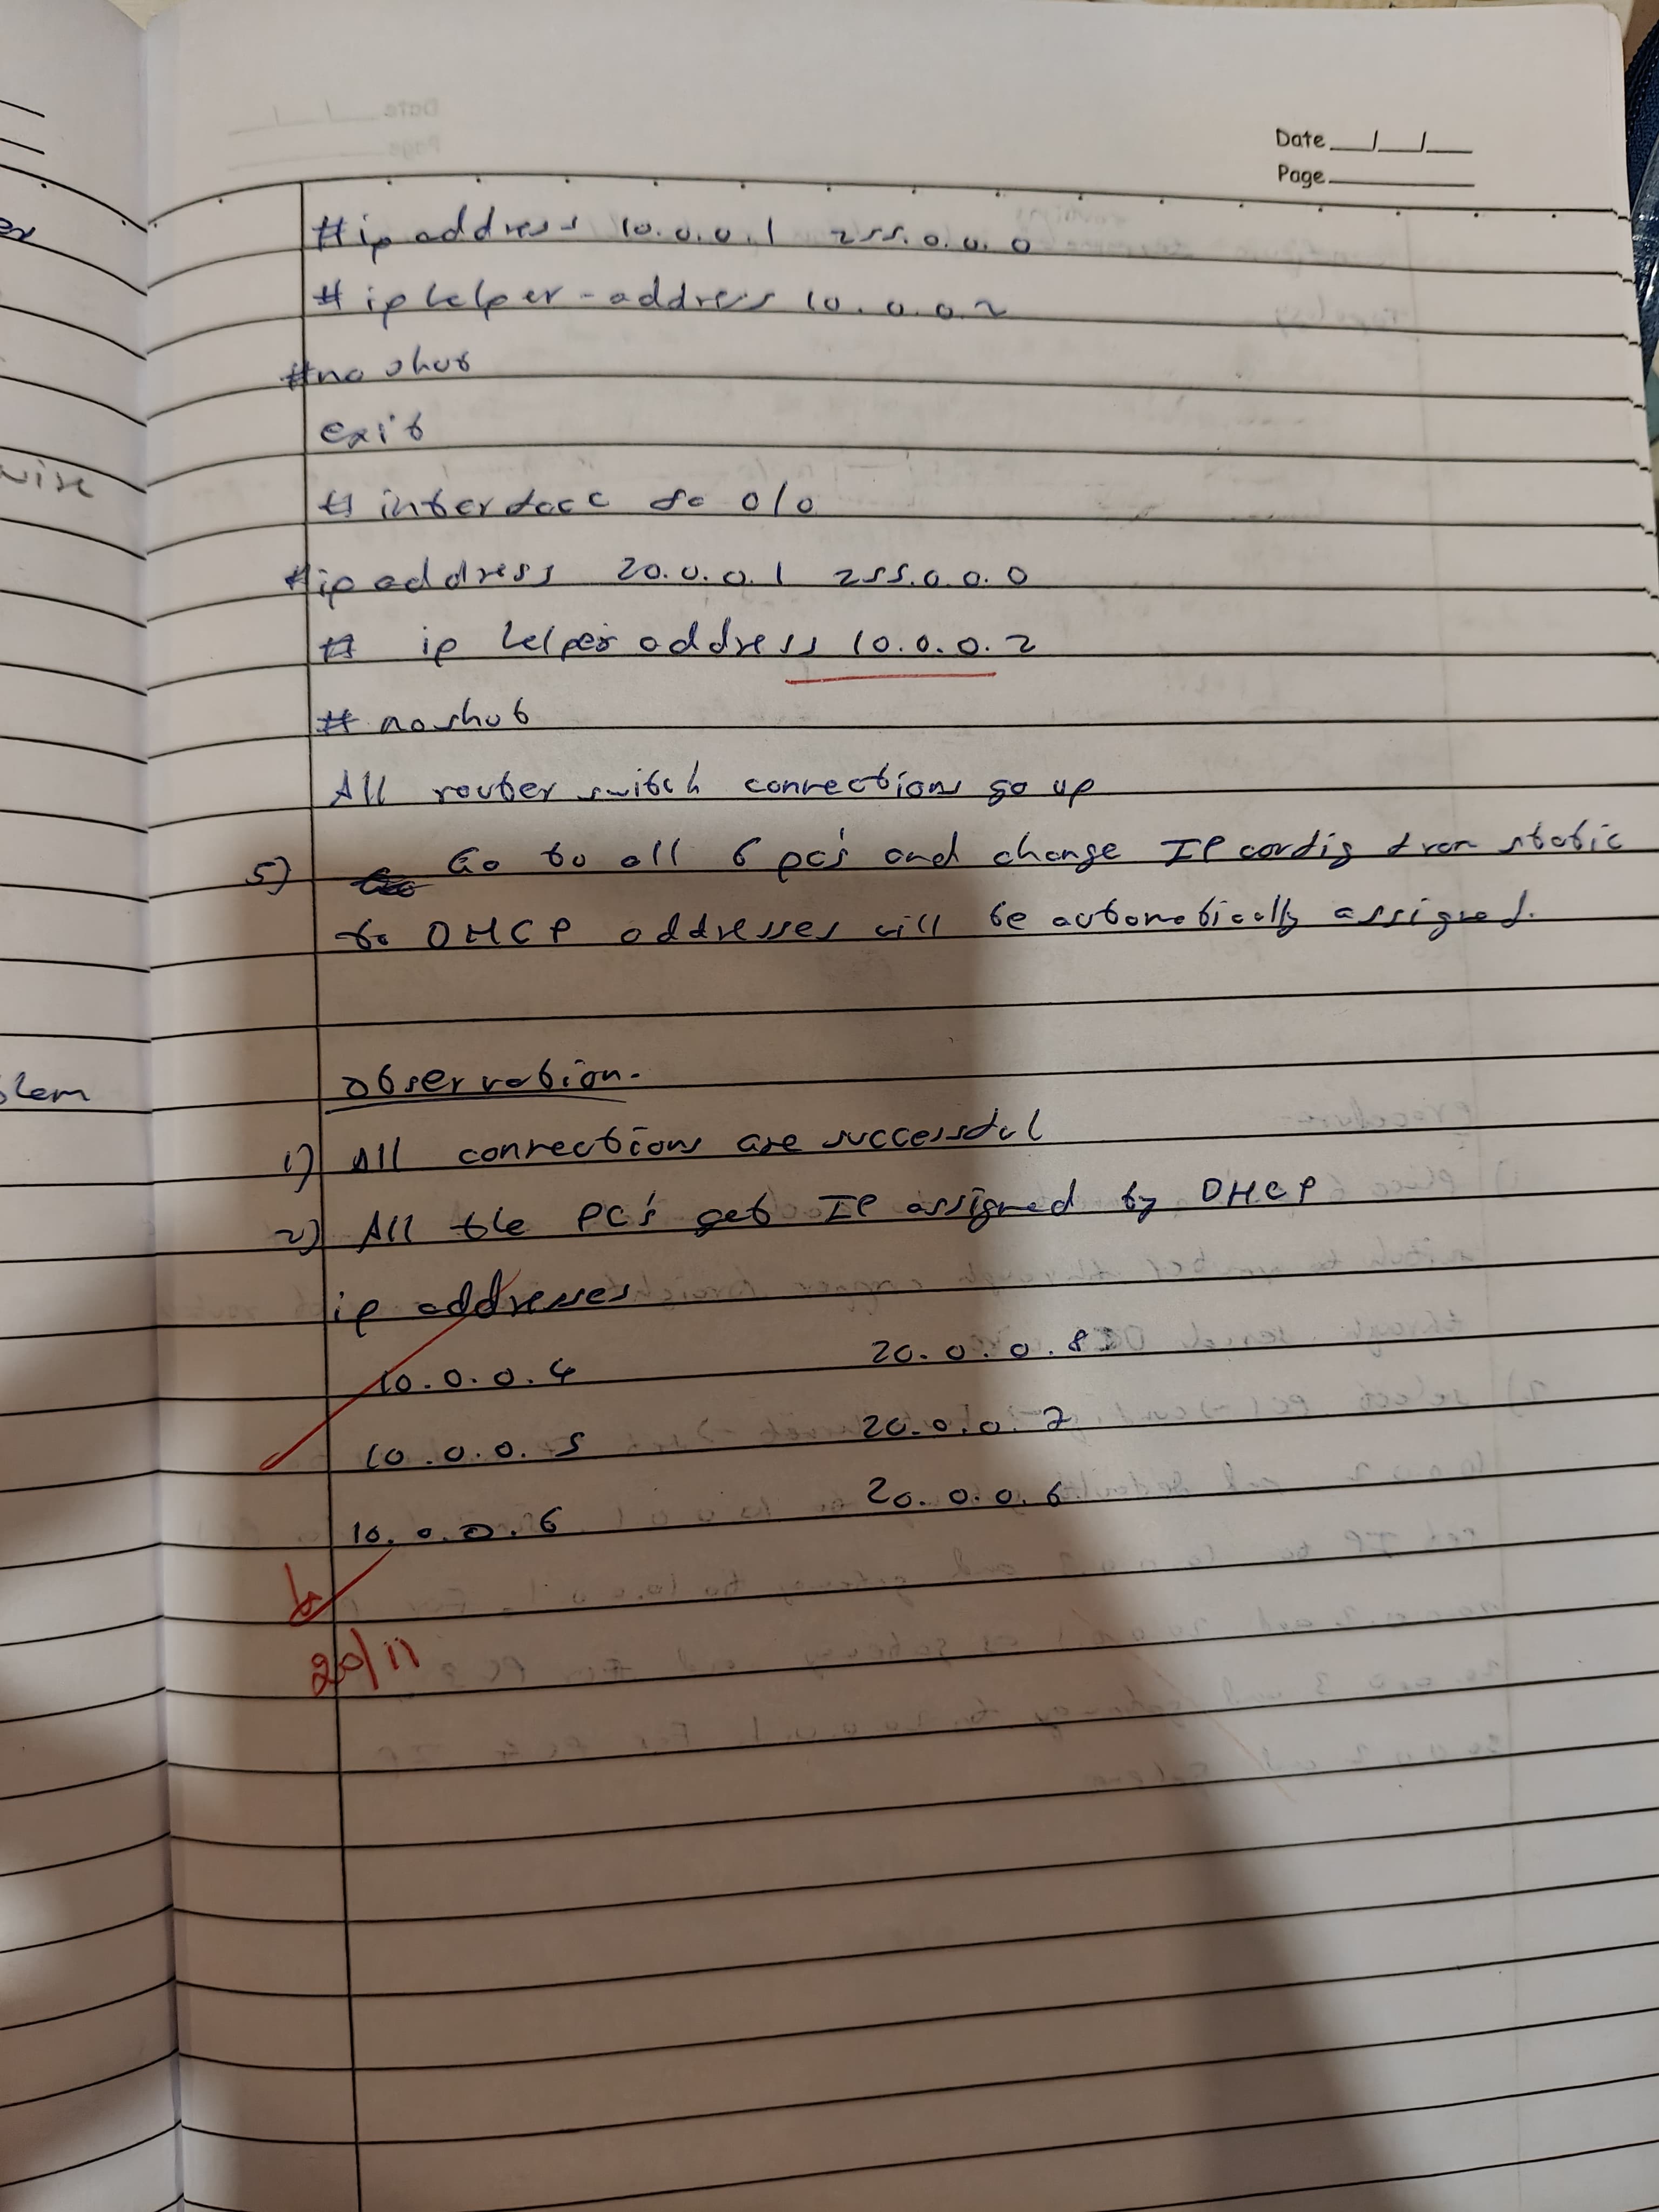 Date __/__/__
Page
#ip address 10.0.0.1 255.0.0.0
# ip helper-address 10.0.0.2
#no shut
exit
# interface fa 0/0
#ip address 20.0.0.1 255.0.0.0
# ip helper address 10.0.0.2
# no shut
All router switch connections go up
5) Go to all 6 pc's and change IP config from static
to DHCP addresses will be automatically assigned.
observation.
1) All connections are successful
2) All the PC's get IP assigned by DHCP
ip addresses
10.0.0.4 20.0.0.8
10.0.0.5 20.0.0.7
10.0.0.6 20.0.0.6
20/11